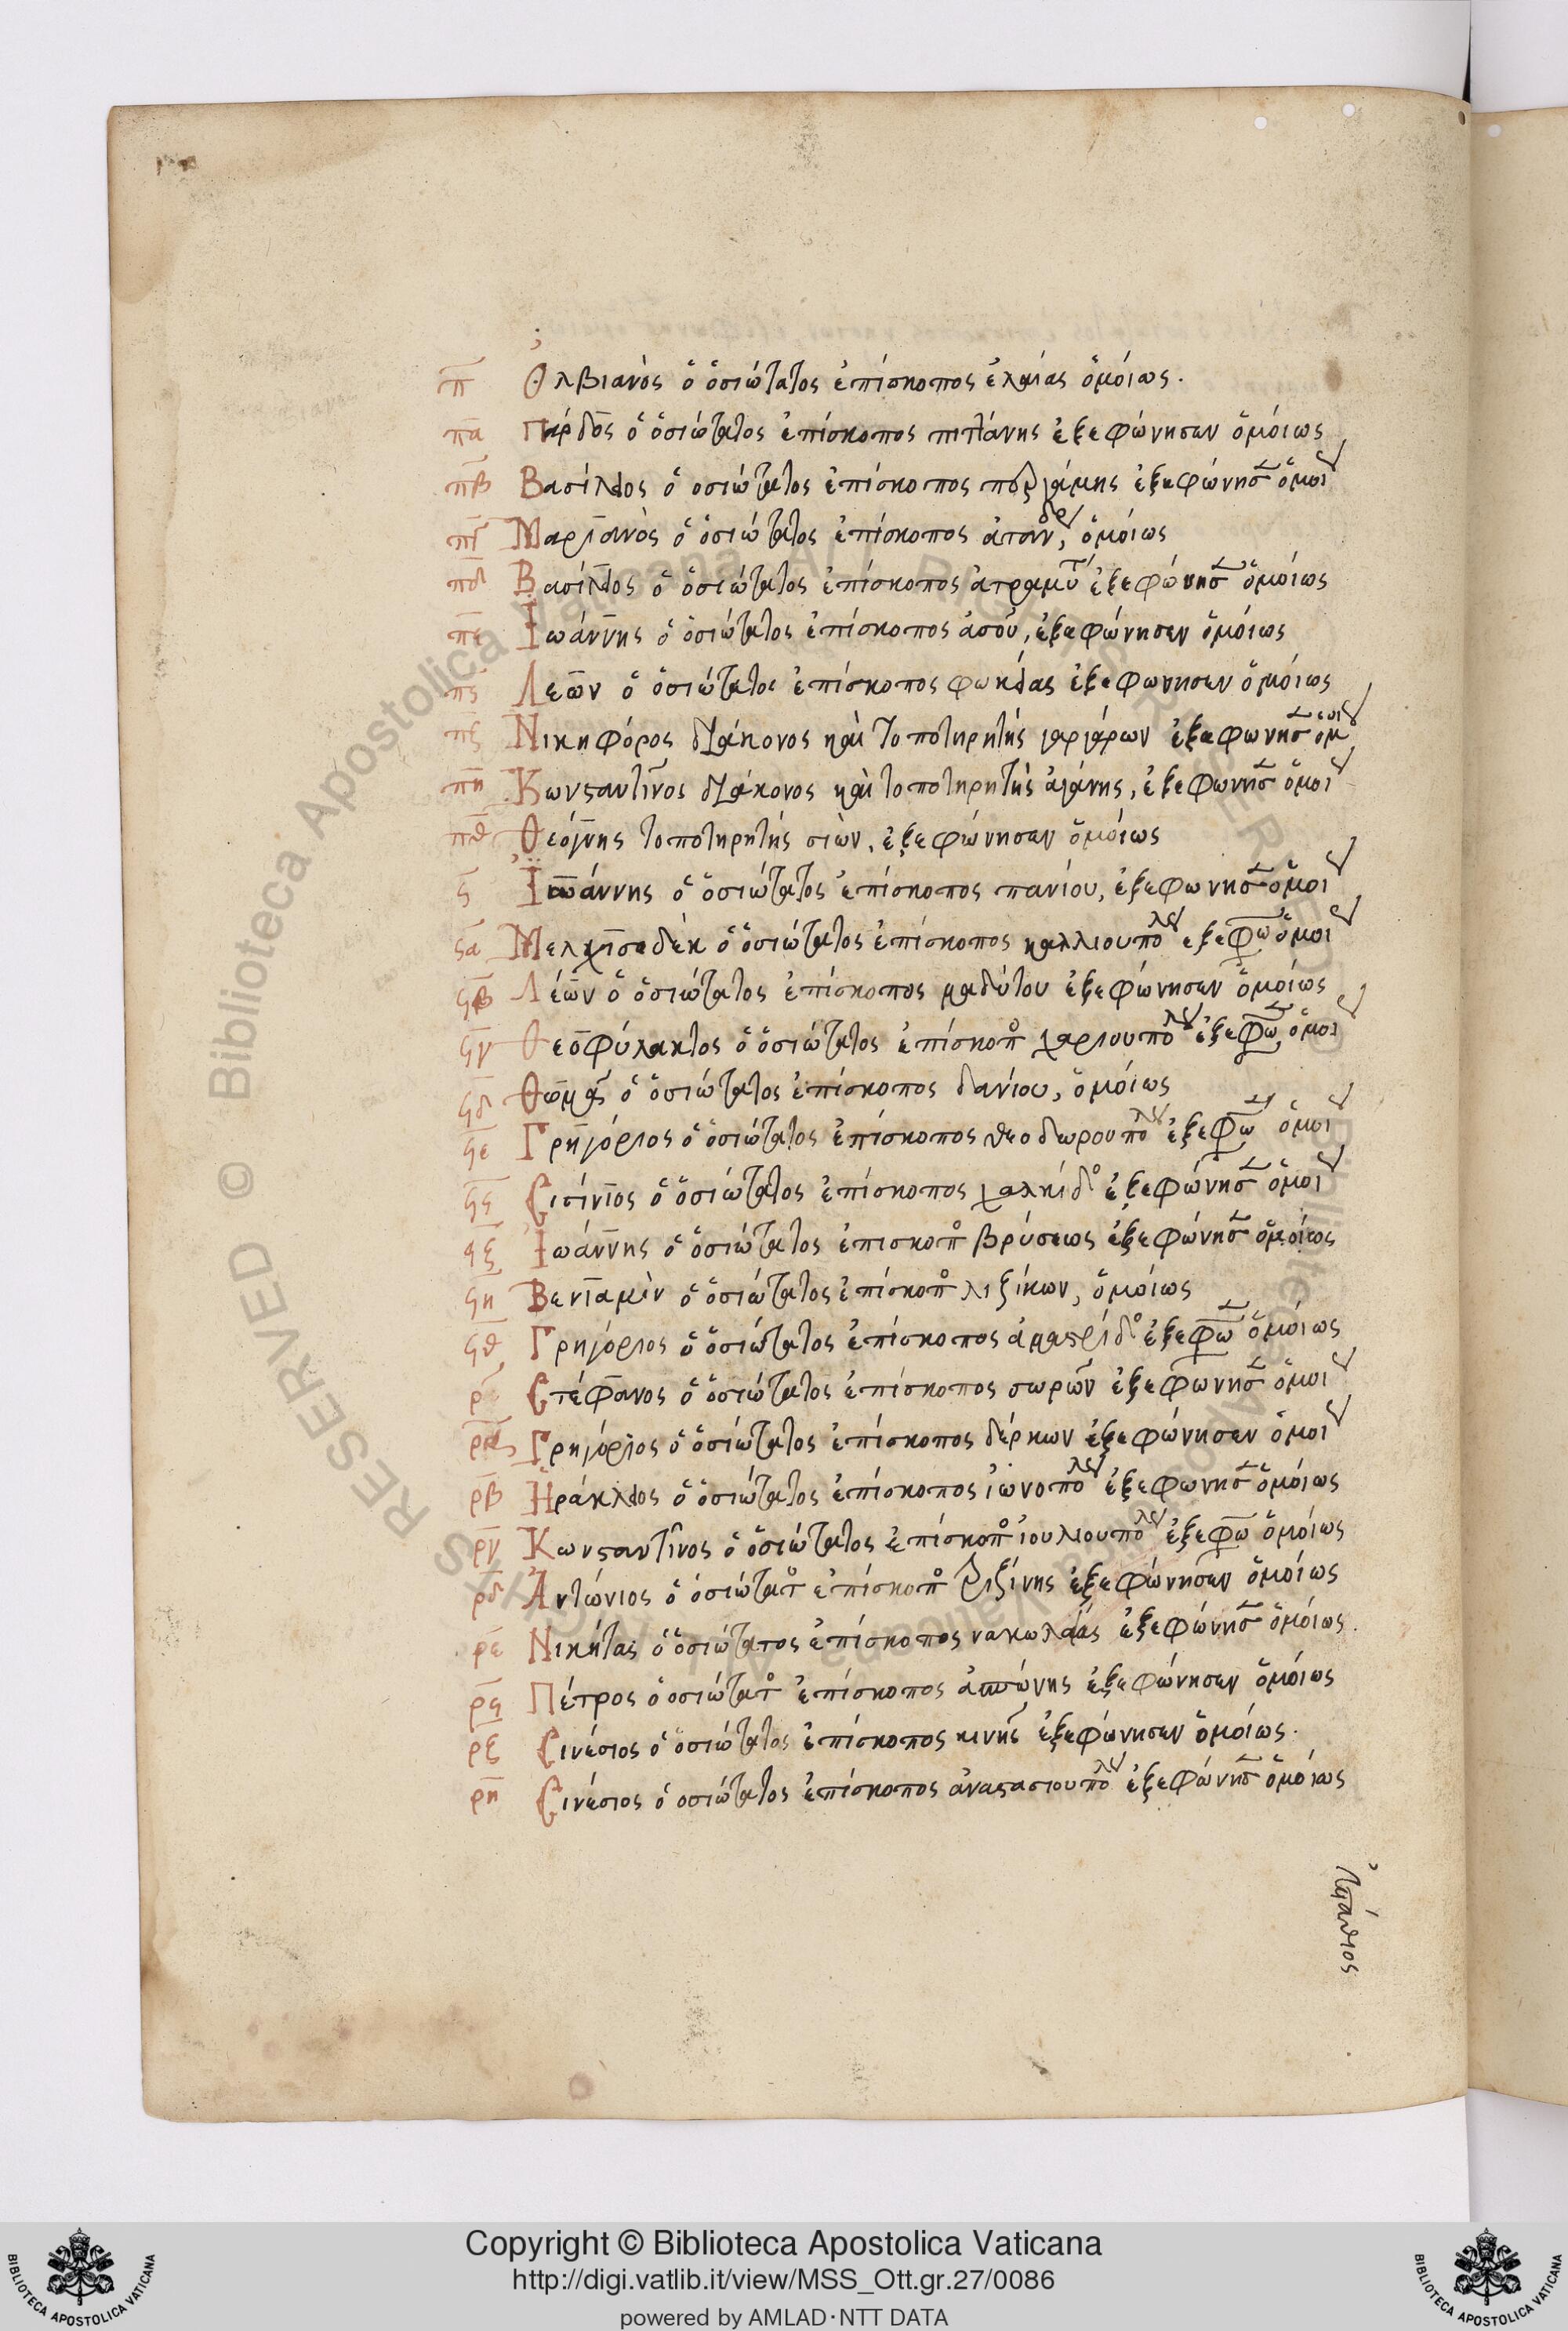 π Ὀλβιανὸς ὁ ὁσιώτατος ἐπίσκοπος ἐλαίας ὁμοίως.
πα Πάρδος ὁ ὁσιώτατος ἐπίσκοπος πιτάνης ἐξεφώνησεν ὁμοίως
πβ Βασίλειος ὁ οσιώτατος ἐπίσκοπος περγάμης ἐξεφώνησ ὁμοι
πγ Μαριανὸς ὁ ὁσιώτατος ἐπίσκοπος ὁμοίως
πδ Βασίλειος ὁ ὁσιώτατος ἐπίσκοπος ἀτραμυτ ἐξεφώνησ ὁμοίως
πε Ἰωάννης ὁ ὁσιώτατος ἐπίσκοπος ἀσοῦ, ἐξεφώνησεν ὁμοίως
πς Λεων ὁ ὁσιώτατος ἐπίσκοπος φωκείας ἐξεφωνησεν ὁμοίως
πζ Νικηφόρος διάκονος καὶ τοποτηρητής γαργάρων ἐξεφωνησ ὁμοι
πη Κωνσταντῖνος διάκονος καὶ τοποτηρητής ἀγάνης, ἐξεφωνησ ὁμοι
πθ Θεόγνης τοποτηρητής σιὼν, ἐξεφώνησεν ὁμοίως
ϟ Ἰωάννης ὁ ὁσιώτατος ἐπίσκοπος πανίου, ἐξεφωνησ ὁμοι
ϟα Μελχισεδὲκ ὁ ὁσιώτατος ἐπίσκοπος καλλιουπολ εξεφω ὁμοι
ϟβ Λέων ὁ ὁσιώτατος ἐπίσκοπος μαδύτου ἐξεφώνησεν ὁμοίως
ϟγ Θεοφύλακτος ὁ ὁσιώτατος ἐπίσκοπ χαριουπολ ἐξεφω ὁμοι
ϟδ Θωμᾶς ὁ ὁσιώτατος ἐπίσκοπος δανίου, ὁμοίως
ϟε Γρηγόριος ὁ ὁσιώτατος ἐπίσκοπος θεοδωρουπολ ἐξεφω ὁμοι
ϟς Σισίνιος ὁ ὁσιώτατος ἐπίσκοπος χαλκίδο ἐξεφώνησ ὁμοι
ϟζ Ἰωάννης ὁ ὁσιώτατος ἐπισκοπ βρύσεως ἐξεφώνησ ὁμοίως
ϟη Βενιαμὶν ὁ ὁσιώτατος ἐπίσκοπ λιζίκων, ὁμοίως
ϟθ Γρηγόριος ὁ ὁσιώτατος ἐπίσκοπος ἀμαστρίδο ἐξεφω ὁμοίως
ρ Στέφανος ὁ ὁσιώτατος ἐπίσκοπος σωρῶν ἐξεφωνησ ὁμοι
ρα Γρηγόριος ὁ ὁσιώτατος ἐπίσκοπος δέρκων ἐξεφώνησεν ὁμοι
ρβ Ἡράκλειος ὁ ὁσιώτατος ἐπίσκοπος ἰωνοπολ ἐξεφωνησ ὁμοίως
ργ Κωνσταντῖνος ὁ ὁσιώτατος ἐπίσκοπ ἰουλιουπολ ἐξεφω ὁμοίως
ρδ Ἀντώνιος ὁ ὁσιώτατ ἐπίσκοπ ἐξεφώνησεν ὁμοίως
ρε Νικήτας ὁ ὁσιώτατος ἐπίσκοπος νακωλείας ἐξεφώνησ ὁμοίως.
ρς Πέτρος ὁ οσιώτατ ἐπίσκοπος ἐξεφώνησεν ὁμοίως
ρζ Σινέσιος ὁ ὁσιώτατος ἐπίσκοπος κινῆς ἐξεφώνησεν ὁμοίως.
ρη Σινέσιος ὁ οσιώτατος ἐπίσκοπος ἀναστασιουπολ ἐξεφώνησ ὁμοίως
Copyright © Biblioteca Apostolica Vaticana
http://digi.vatlib.it/view/MSS_Ott.gr.27/0086
powered by AMLAD·NTT DATA
BIBLIOTECA APOSTOLICA VATICANA
BIBLIOTECA APOSTOLICA VATICANA